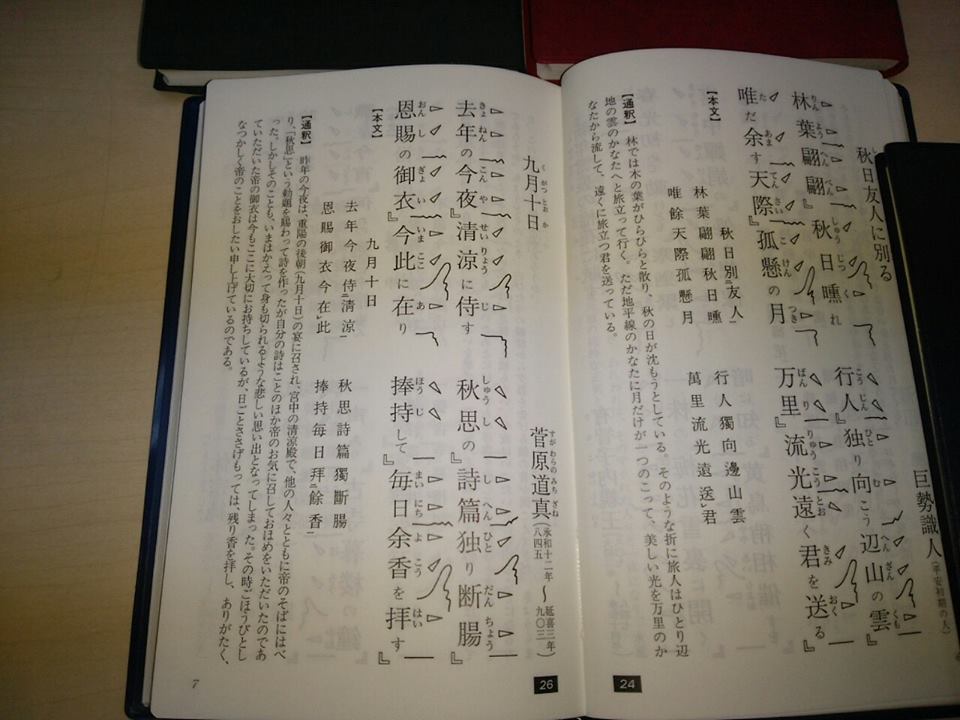 秋日友人に別る
巨勢識人(平安初期の人)
りん よう へん ぺん しゅう じつ く こう じん ひと む へん ざん くも
林葉翩翩』秋日曛れ 行人』独り向こう辺山の雲』
た あま てん さい こ けん つき ばん り りゅう こう とお きみ おく
唯だ余す天際』孤懸の月 万里』流光遠く君を送る』
【本文】
秋日別友人
林葉翩翩秋日曛 行人獨向邊山雲
唯餘天際孤懸月 萬里流光遠送君
【通釈】 林では木の葉がひらひらと散り、秋の日が沈もうとしている。そのような折に旅人はひとり辺
地の雲のかなたへと旅立って行く。ただ地平線のかなたに月だけが一つのこって、美しい光を万里のか
なたから流して、遠くに旅立つ君を送っている。
24
く がつ とお か
九月十日
すが わらの みち ざね
菅原道真(承和十二年 八四五 〜 延喜三年 九〇三)
きょ ねん こん や せい りょう じ しゅう し し へん ひと だん ちょう
去年の今夜』清涼に侍す 秋思の』詩篇独り断腸』
おん し ぎょ い いま ここ あ ほう じ まい にち よ こう はい
恩賜の御衣』今此に在り 捧持して』毎日余香を拝す』
【本文】
九月十日
去年今夜侍二清涼一 秋思詩篇獨斷腸
恩賜御衣今在レ此 捧持毎日拜二餘香一
【通釈】 昨年の今夜は、重陽の後朝(九月十日)の宴に召され、宮中の清涼殿で、他の人々とともに帝のそばにはべ
り、「秋思」という勅題を賜わって詩を作ったが自分の詩はことのほか帝のお気に召しておほめをいただいたのであ
った。しかしそのことも、いまはかえって身も切られるような悲しい思い出となってしまった。その時ごほうびとし
ていただいた帝の御衣は今もここに大切にお持ちしているが、日ごとささげもっては、残り香を拝し、ありがたく、
なつかしく帝のことをおしたい申し上げているのである。
26
7